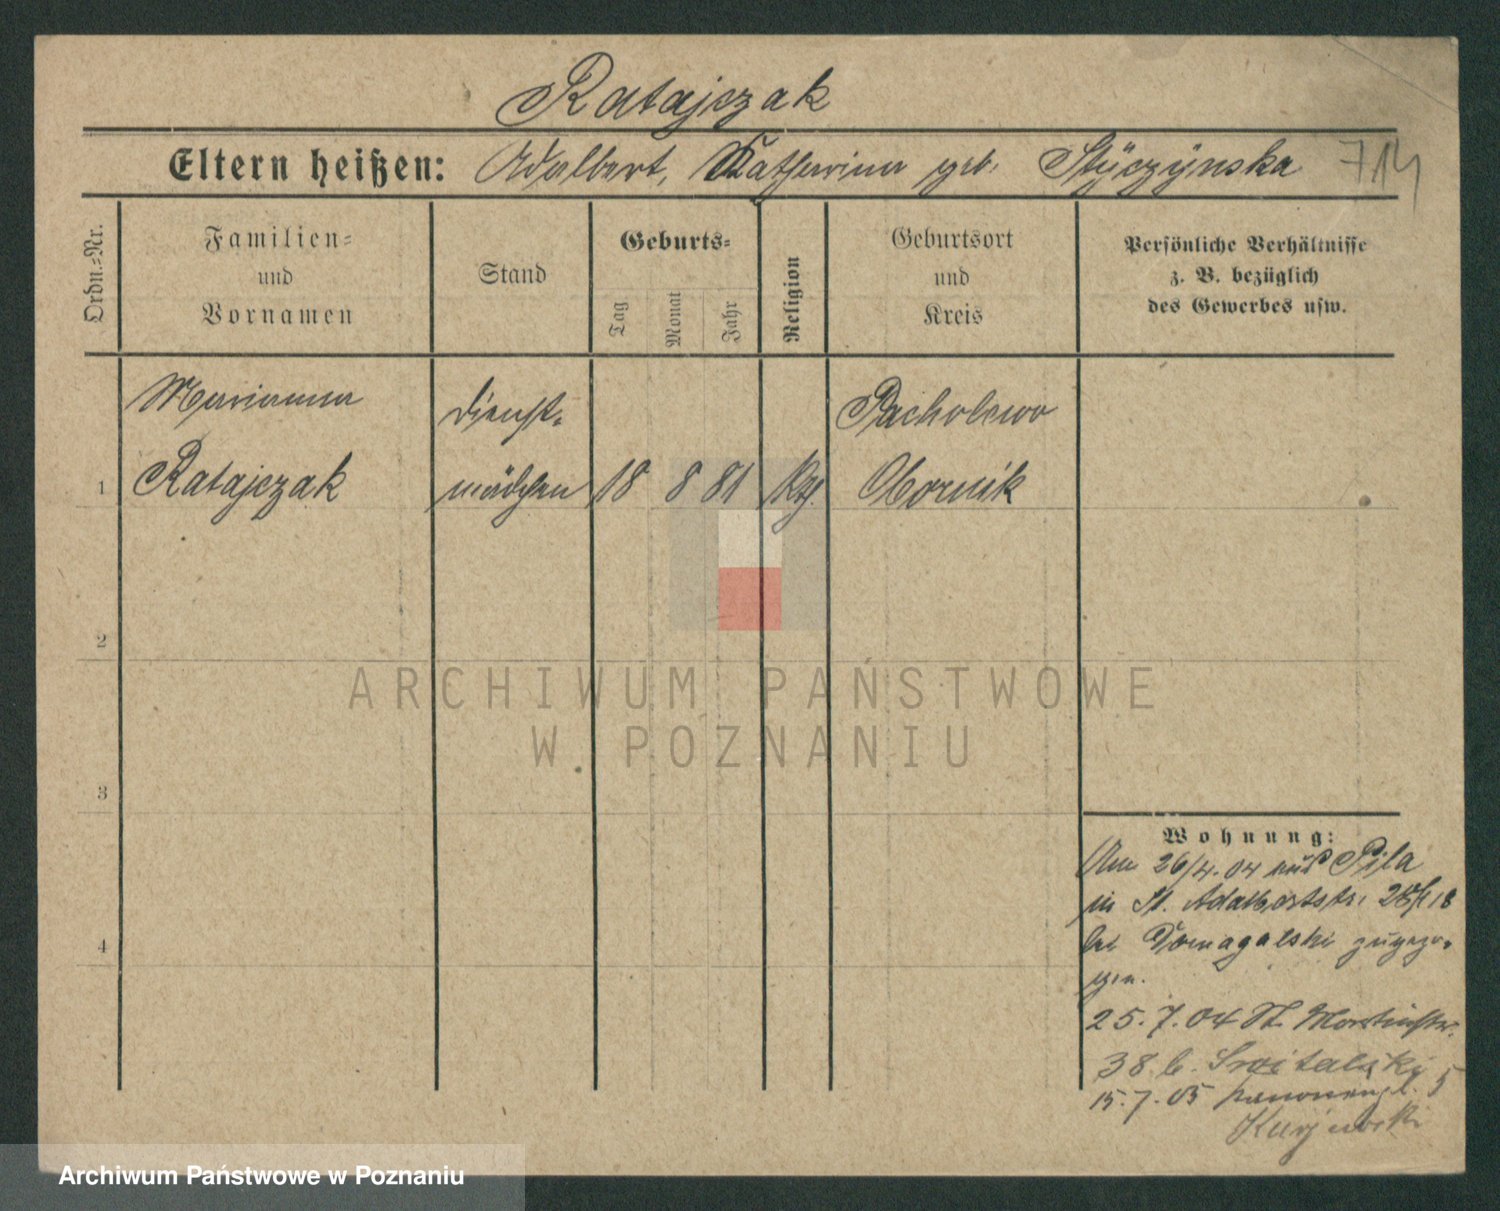 Ratajczak
Eltern heißen: Adalbert, Katharina geb. Styczynska 714
Ordn.-Nr.
Familien-
und
Vornamen
Stand
Geburts-
Tag
Monat
Jahr
Religion
Geburtsort
und
Kreis
Persönliche Verhältnisse
z. B. bezüglich
des Gewerbes usw.
Marianna
Ratajczak
Dienst-
mädchen
1
18 8 81
Pacholewo
Obornik
2
3
4
ARCHIWUM PAŃSTWOWE
W POZNANIU
Wohnung:
Am 26/4.04 aus Pila
in St. Adalbertstr. 18
bei Domagalski zugezo-
gen.
25.7.04 St. Martinstr.
38 b.
15.7.05 5
Archiwum Państwowe w Poznaniu